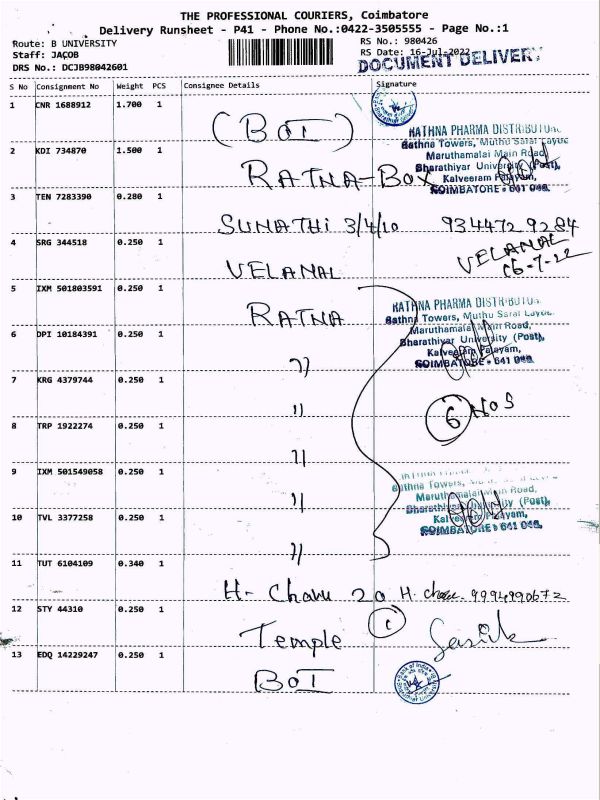 THE PROFESSIONAL COURIERS, Coimbatore
Delivery Runsheet - P41 - Phone No.:0422-3505555 - Page No.:1
Route: B UNIVERSITY
RS No.: 980426
Staff: JACOB
RS Date: 16-Jul-2022
DRS No.: DCJB98042601
DOCUMENT DELIVERY
S No Consignment No Weight PCS Consignee Details Signature
1 CNR 1688912 1.700 1
(BOI)
RATHNA PHARMA DISTRIBUTOR
Rathna Towers, Muthu Sarai Layout
Maruthamalai Main Road,
2 KDI 734870 1.500 1
Bharathiyar University (Post),
RATNA-BOX
Kalveeram Palayam,
COIMBATORE - 641 046.
3 TEN 7283390 0.280 1
SUNATHI 3/4/10 934472 9284
4 SRG 344518 0.250 1
VELANAL
VELANAL
16-7-22
5 IXM 501803591 0.250 1
RATNA
RATHNA PHARMA DISTRIBUTO
Rathna Towers, Muthu Sarai Layou
Maruthamalai Main Road,
6 DPI 10184391 0.250 1
Bharathiyar University (Post),
Kalveeram Palayam,
COIMBATORE - 641 046.
"
7 KRG 4379744 0.250 1
"
6 NOS
8 TRP 1922274 0.250 1
"
9 IXM 501549058 0.250 1
Rathna Towers,
Maruthamalai Main Road,
"
Bharathiyar University (Post),
10 TVL 3377258 0.250 1
Kalveeram Palayam,
COIMBATORE - 641 046.
"
11 TUT 6104109 0.340 1
H- Charu 20 H. charu 9994990672
12 STY 44310 0.250 1
Temple
13 EDQ 14229247 0.250 1
BOI